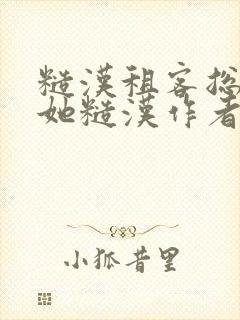 糙漢租客总
她糙漢作者
小狐昔里